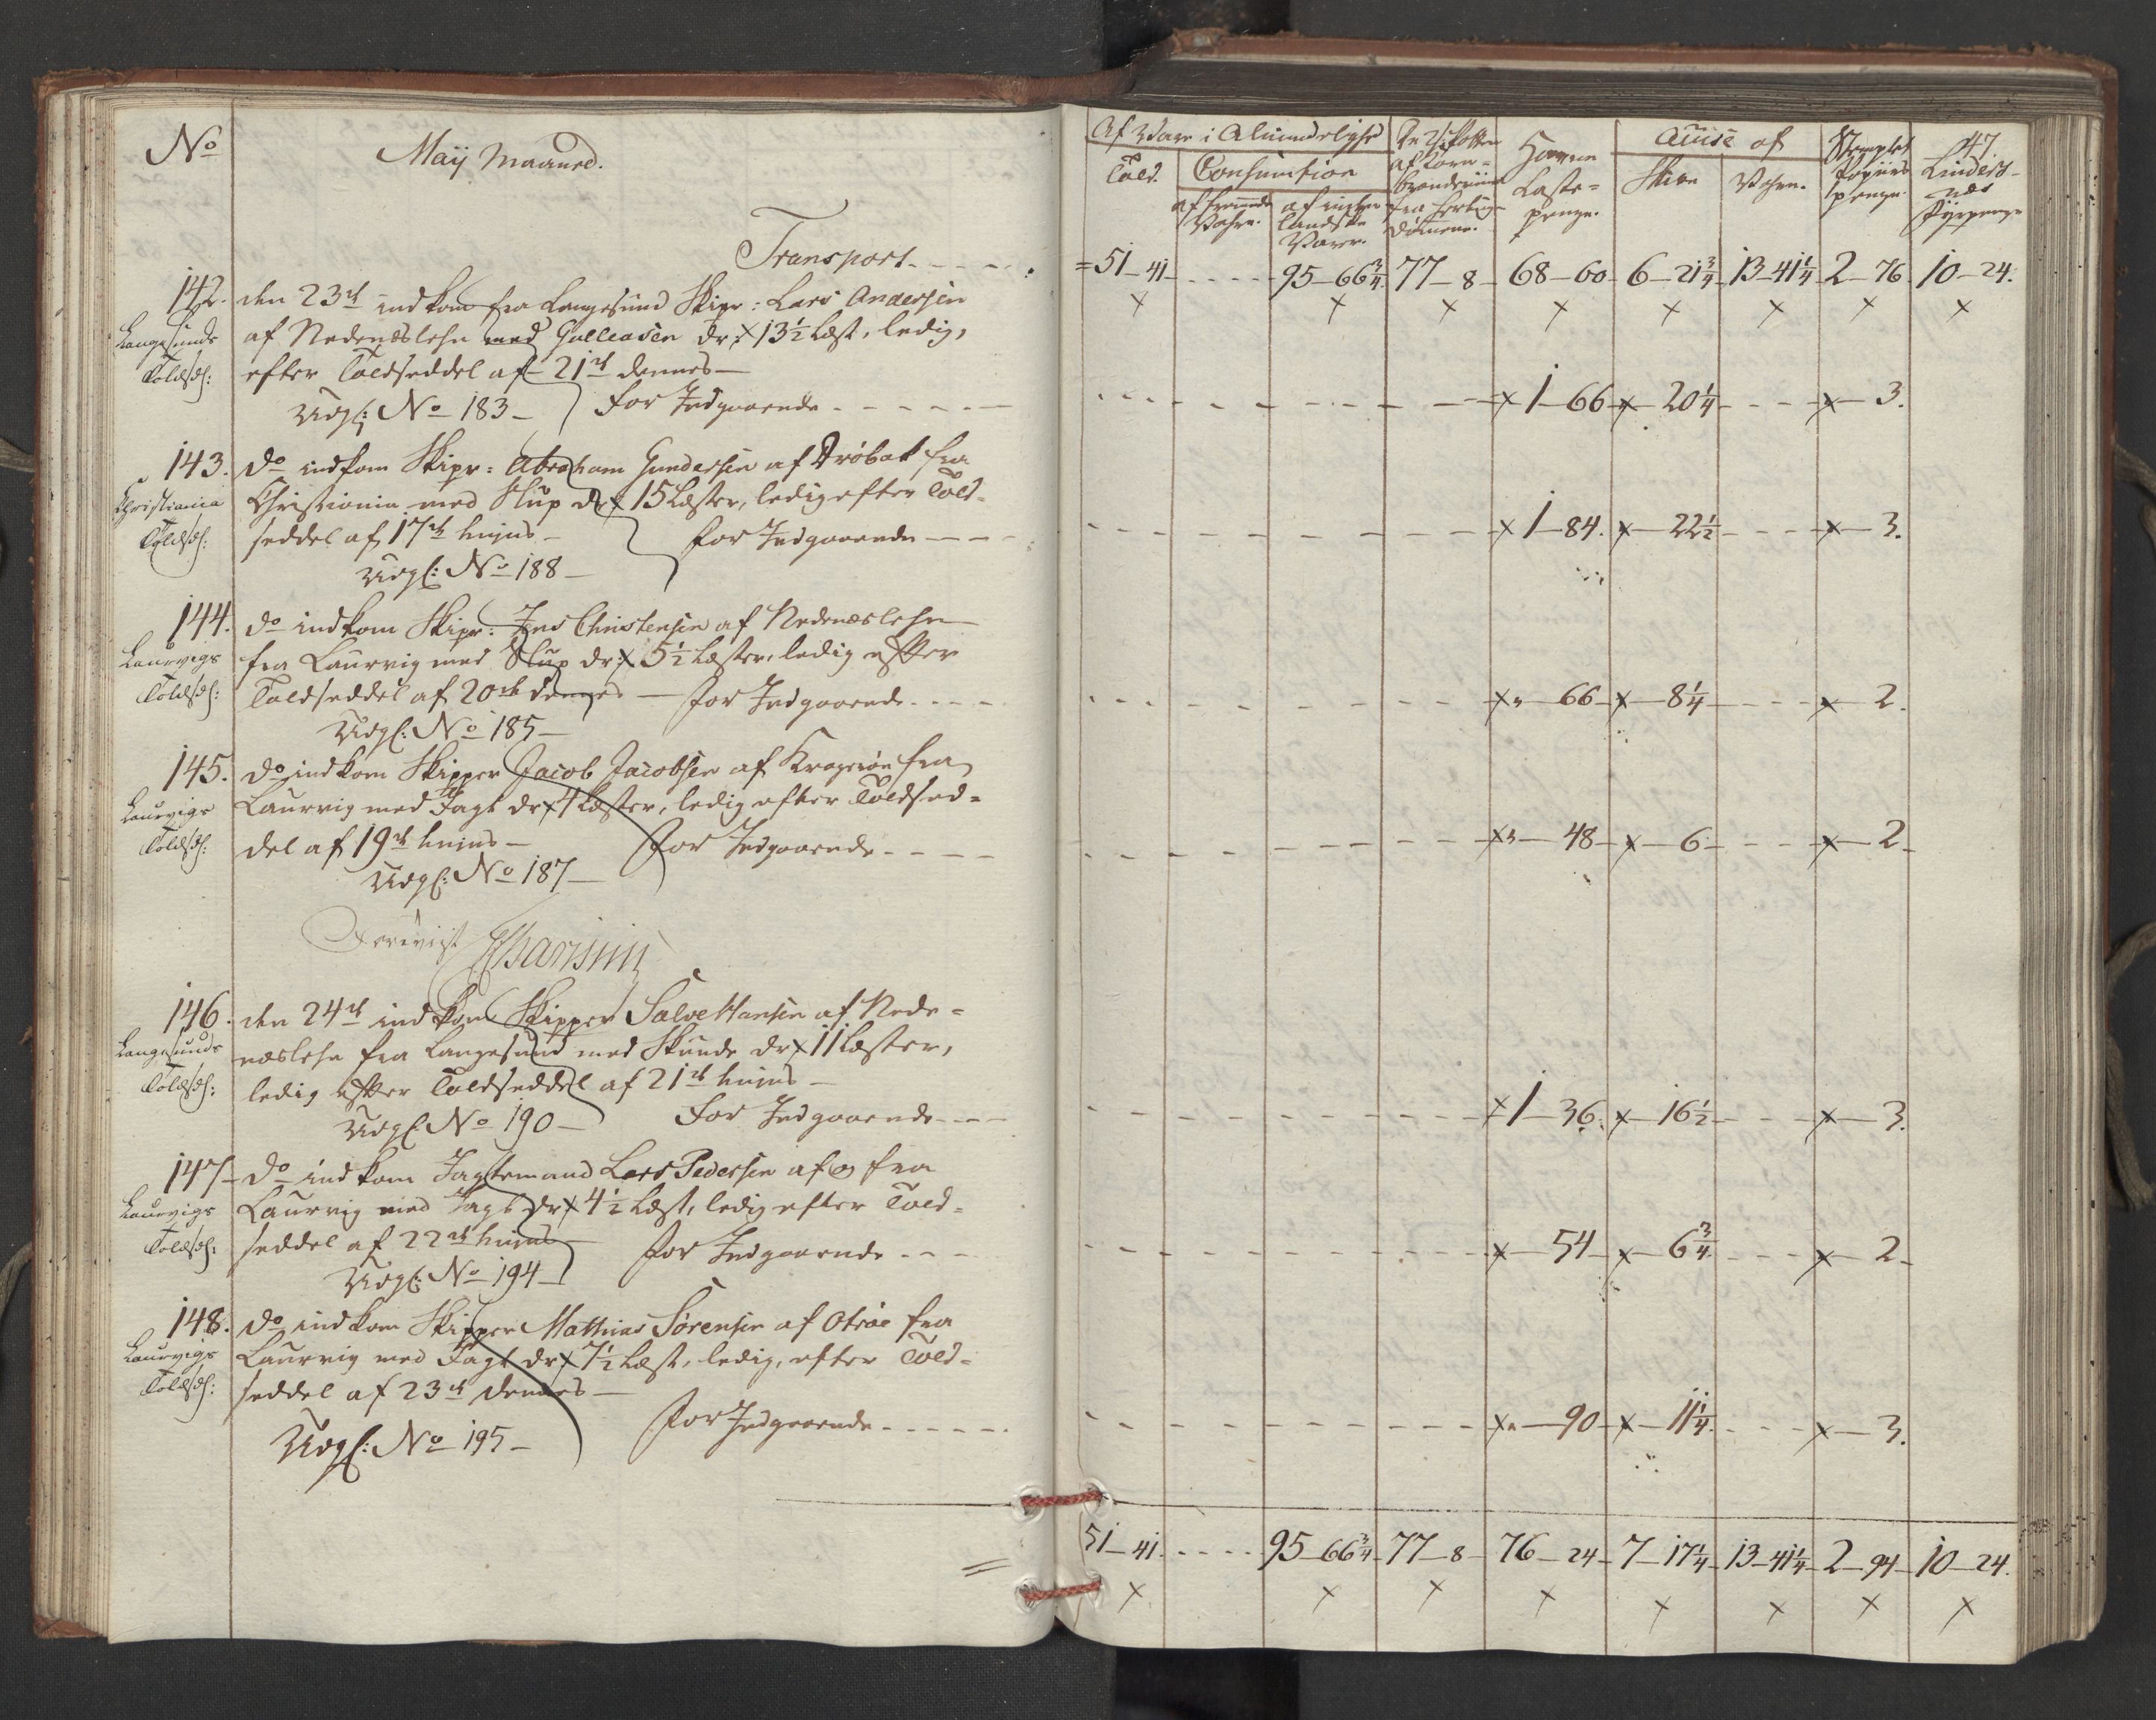 No
Maij Maaned.
Transport
142. den 23de indkom fra Langesund Skipr: Lars Andersen
Langesunds af Nedenæslehn med Galleasen dr: 13½ Læst, ledig,
Toldsdl: efter Toldseddel af 21de dennes
Udgl: No 183 for Indgaaende
143. do indkom Skipr: Abraham Gundersen af Drøbak fra
Christiania Christiania med Slup dr 15 Læster, ledig efter Told-
Toldsdl: seddel af 17de hujus for Indgaaende
Udgl: No 188
144. do indkom Skipr: Jens Christensen af Nedenæslehn
Laurvigs fra Laurvig med Slup dr: 5½ Læster, ledig efter
Toldsdl: Toldseddel af 20de dennes for Indgaaende
Udgl: No 185
145. do indkom Skipper Jacob Jacobsen af Krageröe fra
Laurvigs Laurvig med Jagt dr 4 Læster, ledig efter Toldsed-
Toldsdl: del af 19de hujus for Indgaaende
Udgl: No 187
146. den 24de indkom Skipper Salve Hansen af Nede-
Langesunds næslehn fra Langesund med Skude dr 11 Læster,
Toldsdl: ledig efter Toldseddel af 21de hujus
Udgl: No 190 for Indgaaende
147 do indkom Jagtemand Lars Pedersen af og fra
Laurvigs Laurvig med Jagt dr 4½ Læst, ledig efter Told-
Toldsdl: seddel af 22de hujus for Indgaaende
Udgl: No 194
148. do indkom Skipper Mathias Sørensen af Otröe fra
Laurvigs Laurvig med Jagt dr 7½ Læst, ledig, efter Told-
Toldsdl: seddel af 23de dennes
Udgl: No 195 for Indgaaende
47
Af Vare i Almindelighed
Told. Consumtion
af fremmede Vahre.
af indenlandske Varer.
af Korn-Brændeviin fra Hertugdömene.
Havne Laste-penge.
Accise af
Skibe Vahre.
Stemplet Papiirs penge.
Lindersnæs Fyrpenge
51-41 95-66¾ 77-8 68-60 6-21¾ 13-41¼ 2-76 10-24.
1-66 20¼ 3.
1-84. 22½ 3.
66 8¼ 2.
48 6 2
1-36. 16½ 3.
54 6¾ 2
90 11¼ 3.
51-41. 95-66¾ 77-8 76-24 7-17¼ 13-41¼ 2-94 10-24.